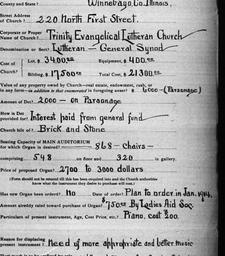 County and State? Winnebago Co. Illinois.
Street Address of Church? 220 North First Street.
Corporate or Proper Name of Church? Trinity Evangelical Lutheran Church
Denomination or Sect? Lutheran — General Synod
Cost of Church? Lot, $ 3400.00 Equipment, $ 400.00
Building, $ 17500.00 Total Cost, $ 21300.00
Value of any property owned by Church
in any form—in addition to that enumerated in foregoing answer? $ 6000 — (Parsonage)
Amount of Debt? 2000 — on Parsonage.
How is Debt provided for? Interest paid from general fund
Church is built of? Brick and Stone
Seating Capacity of MAIN AUDITORIUM
for which Organ is desired? 868 — Chairs —
comprising 548 on floor and 320 in gallery.
Price of proposed Organ? 2700 to 3000 dollars
Has new Organ been ordered? No Date of order? Plan to order in Jan. 1914.
Amount already raised toward purchase of Organ? $750.00 By Ladies Aid Soc.
Particulars of present instrument, Age, Cost Price, etc.? Piano, cost 200.
Reason for displacing present instrument? Need of more appropriate and better music